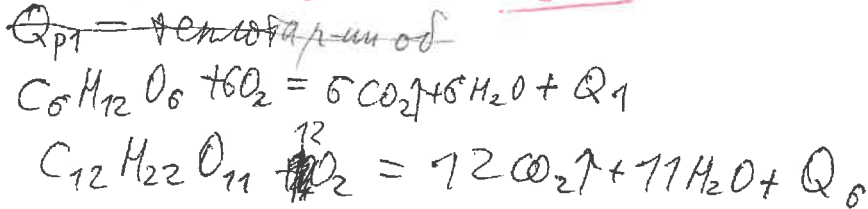 Qр1 = теплота р-ии об
C6H12O6 + 6O2 = 6CO2↑ + 6H2O + Q1
C12H22O11 + 12O2 = 12CO2↑ + 11H2O + Q6